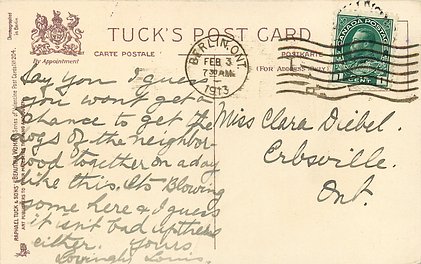 TUCK'S POST CARD
By Appointment
CARTE POSTALE
POSTKARTE
(For Address
BERLIN, ONT
FEB 3
7 30 AM
1913
CANADA POSTAGE
CENT
Say you I guess
you wont get a
chance to get the
dogs of the neighbor-
hood together on a day
like this. Its Blowing
some here & I guess
it isn't bad up there
either. Yours
Lovingly Louis.
Miss Clara Diebel.
Erbsville.
Ont.
RAPHAEL TUCK & SONS'